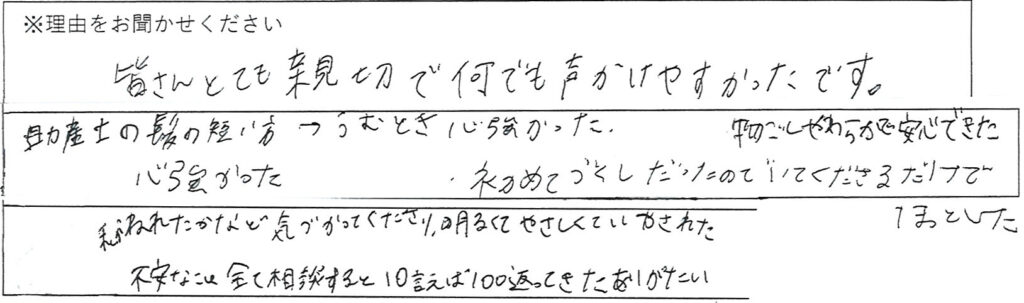 ※理由をお聞かせください
皆さんとても親切で何でも声かけやすかったです。
助産士の髪の短い方→うむとき心強かった. 物ごしやわらかで安心できた
心強かった ・初めてづくしだったのでいてくださるだけで
ほっとした
ねれたかななど気づかってくださり、明るくてやさしくていやされた
不安なこと全て相談すると10言えば100返ってきたありがたい